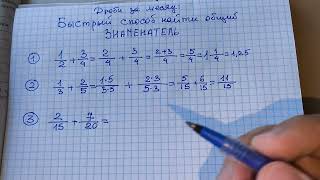 Дроби за месяц.
Быстрый способ найти общий
ЗНАМЕНАТЕЛЬ
① 1/2 + 3/4 = 2/4 + 3/4 = 2+3/4 = 5/4 = 1 1/4 = 1,25
② 1/3 + 2/5 = 1·5/3·5 + 2·3/5·3 = 5/15 + 6/15 = 11/15
③ 2/15 + 7/20 =